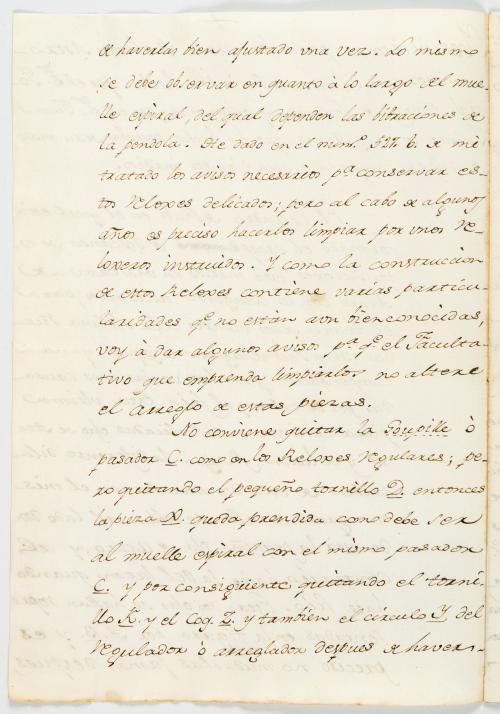 de haverlas bien ajustado vna vez. Lo mismo
se debe observar en quanto à lo largo del mue-
lle espiral, del qual dependen las bibraciones de
la pendola. He dado en el num.º 527 b. de mi
tratado los avisos necesarios p.ª conservar es-
tos Reloxes delicados; pero al cabo de algunos
años es preciso hacerlos limpiar por vnos Re-
loxeros instruidos. Y como la construccion
de estos Reloxes contiene varias particu-
laridades q.e no estàn aun bien conocidas,
voy à dar algunos avisos p.ª q.e el Faculta-
tivo que emprenda limpiarlos no altere
el arreglo de estas piezas.
No conviene quitar la Goupille ò
pasador C. como en los Reloxes regulares; pe-
ro quitando el pequeño tornillo D. entonces
la pieza N. queda prendida como debe ser
al muelle espiral con el mismo pasador
C. y por consigüiente quitando el torni-
llo K. y el Coq Z. y tambien el circulo Y del
regulador ò arreglador despues de havers-